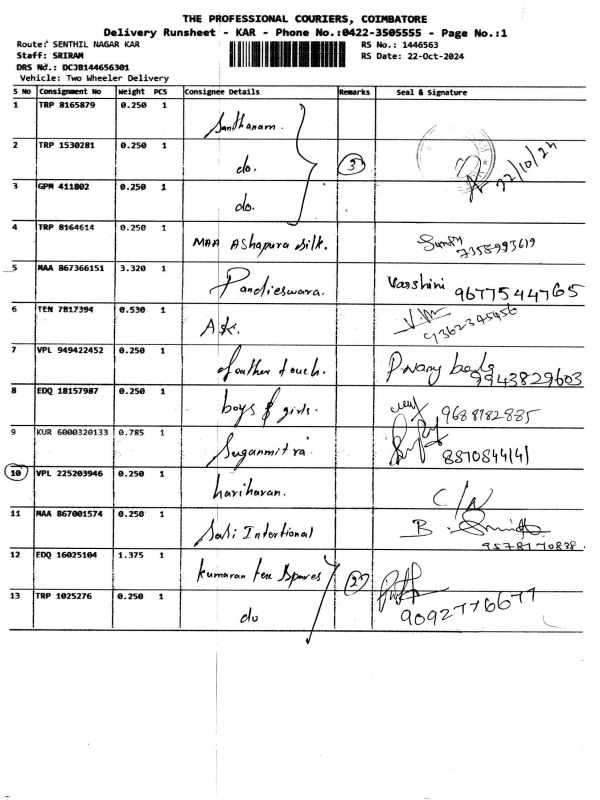 THE PROFESSIONAL COURIERS, COIMBATORE
Delivery Runsheet - KAR - Phone No.:0422-3505555 - Page No.:1
Route: SENTHIL NAGAR KAR RS No.: 1446563
Staff: SRIRAM RS Date: 22-Oct-2024
DRS No.: DCJB144656301
Vehicle: Two Wheeler Delivery
S No Consignment No Weight PCS Consignee Details Remarks Seal & Signature
1 TRP 8165879 0.250 1 Santhanam.
2 TRP 1530281 0.250 1 do. 3 22/10/24
3 GPM 411802 0.250 1 do.
4 TRP 8164614 0.250 1 MAA Ashapura silk. 7358993619
5 MAA 867366151 3.320 1 Pandieswara. Varshini 9677544765
6 TEN 7817394 0.530 1 Ask. 9362345456
7 VPL 949422452 0.250 1 feather touch. 9943829603
8 EDQ 18157987 0.250 1 boys & girls. 9688182885
9 KUR 6000320133 0.785 1 Suganmitra 8810844141
10 VPL 225203946 0.250 1 hariharan. C/N
11 MAA 867001574 0.250 1 Sasi Intertional B. 9578170838.
12 EDQ 16025104 1.375 1 kumaran tex Spares 2
13 TRP 1025276 0.250 1 do 9092776677